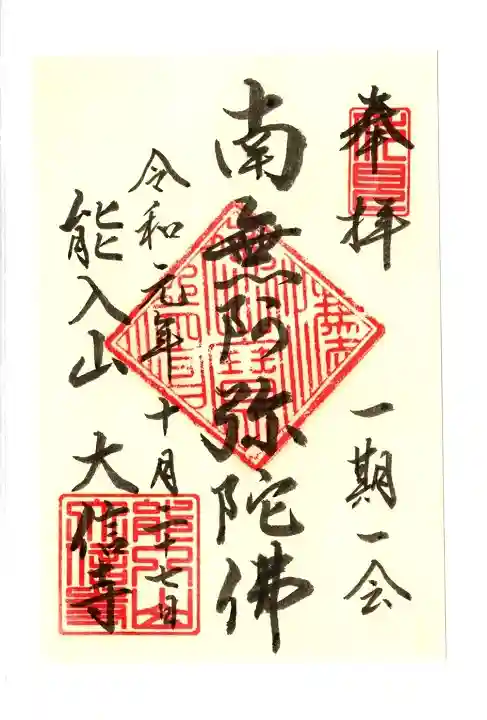 奉拝 一期一会
南無阿弥陀佛
令和元年十月二十七日
能入山 大信寺